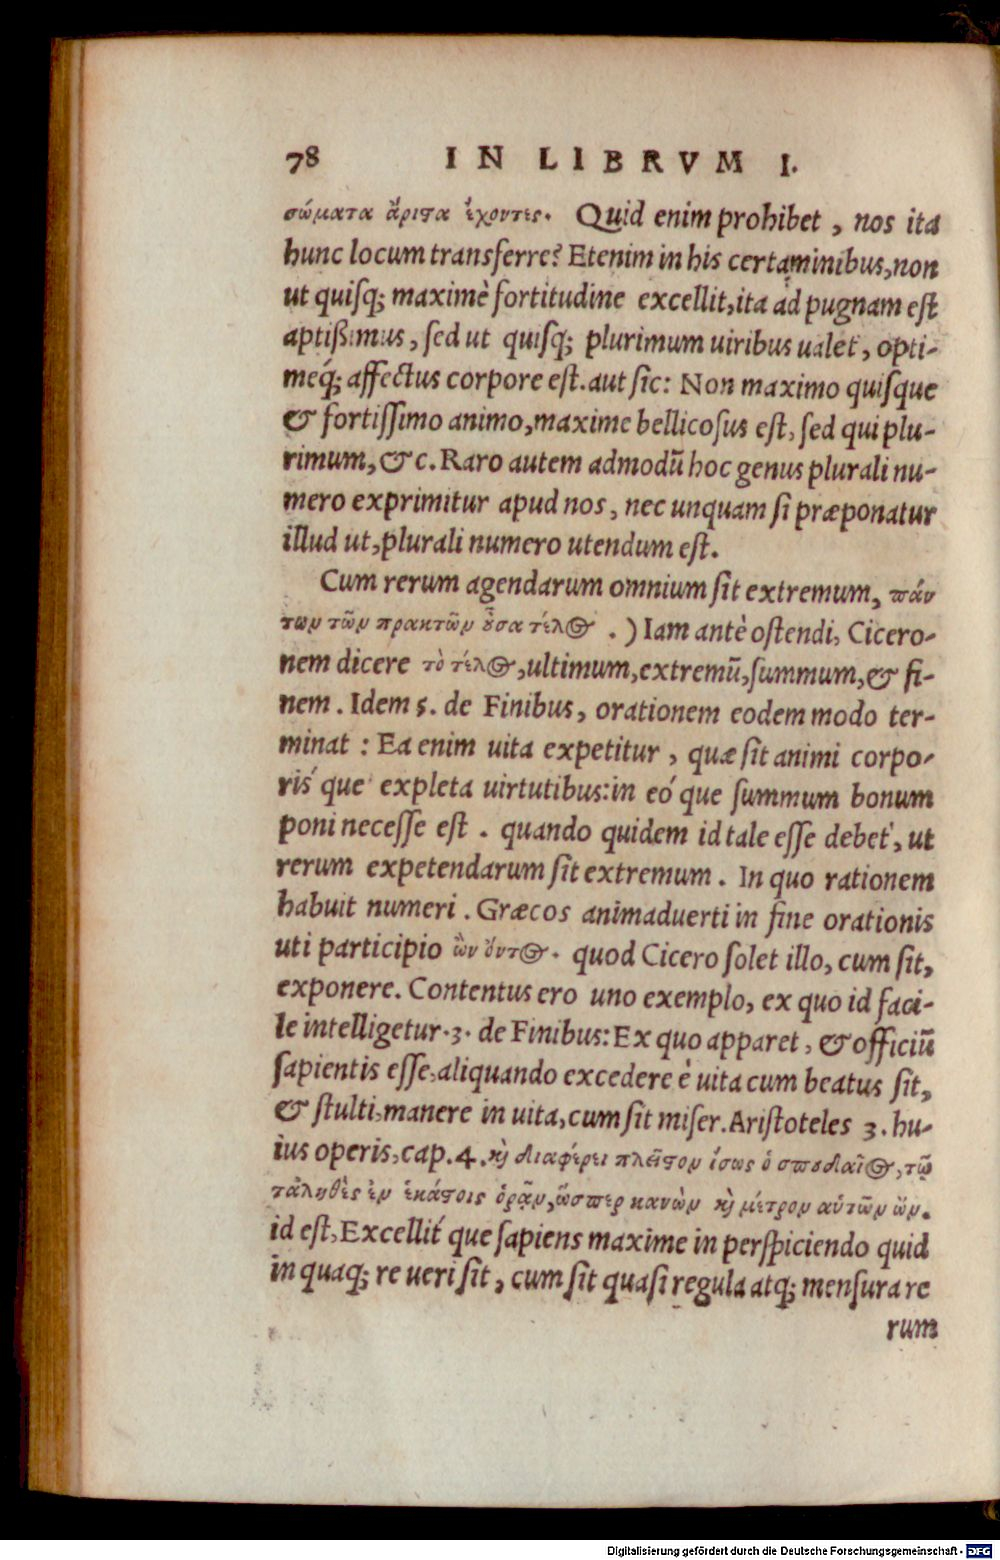 78 IN LIBRVM I.
σώματα ἄριστα ἔχοντες. Quid enim prohibet, nos ita
hunc locum transferre? Etenim in his certaminibus, non
ut quisq; maximè fortitudine excellit, ita ad pugnam est
aptißimus, sed ut quisq; plurimum uiribus ualet, opti-
meq́; affectus corpore est. aut sic: Non maximo quisque
& fortissimo animo, maxime bellicosus est, sed qui plu-
rimum, &c. Raro autem admodū hoc genus plurali nu-
mero exprimitur apud nos, nec unquam si præponatur
illud ut, plurali numero utendum est.
Cum rerum agendarum omnium sit extremum, πάν
των τῶν πρακτῶν οὖσα τέλος.) Iam antè ostendi, Cicero-
nem dicere τὸ τέλος, ultimum, extremū, summum, & fi-
nem. Idem 5. de Finibus, orationem eodem modo ter-
minat: Ea enim uita expetitur, quæ sit animi corpo-
ris´que expleta uirtutibus: in eó que summum bonum
poni necesse est. quando quidem id tale esse debet, ut
rerum expetendarum sit extremum. In quo rationem
habuit numeri. Græcos animaduerti in fine orationis
uti participio ὢν ὄντος. quod Cicero solet illo, cum sit,
exponere. Contentus ero uno exemplo, ex quo id faci-
le intelligetur. 3. de Finibus: Ex quo apparet, & officiū
sapientis esse, aliquando excedere è uita cum beatus sit,
& stulti, manere in uita, cum sit miser. Aristoteles 3. hu-
ius operis, cap. 4. καὶ διαφέρει πλεῖστον ἴσως ὁ σπουδαῖος, τῷ
τἀληθὲς ἐν ἑκάστοις ὁρᾷν, ὥσπερ κανὼν καὶ μέτρον αὐτῶν ὤν.
id est, Excellit´ que sapiens maxime in perspiciendo quid
in quaq; re ueri sit, cum sit quasi regula atq; mensura re
rum
Digitalisierung gefördert durch die Deutsche Forschungsgemeinschaft - DFG